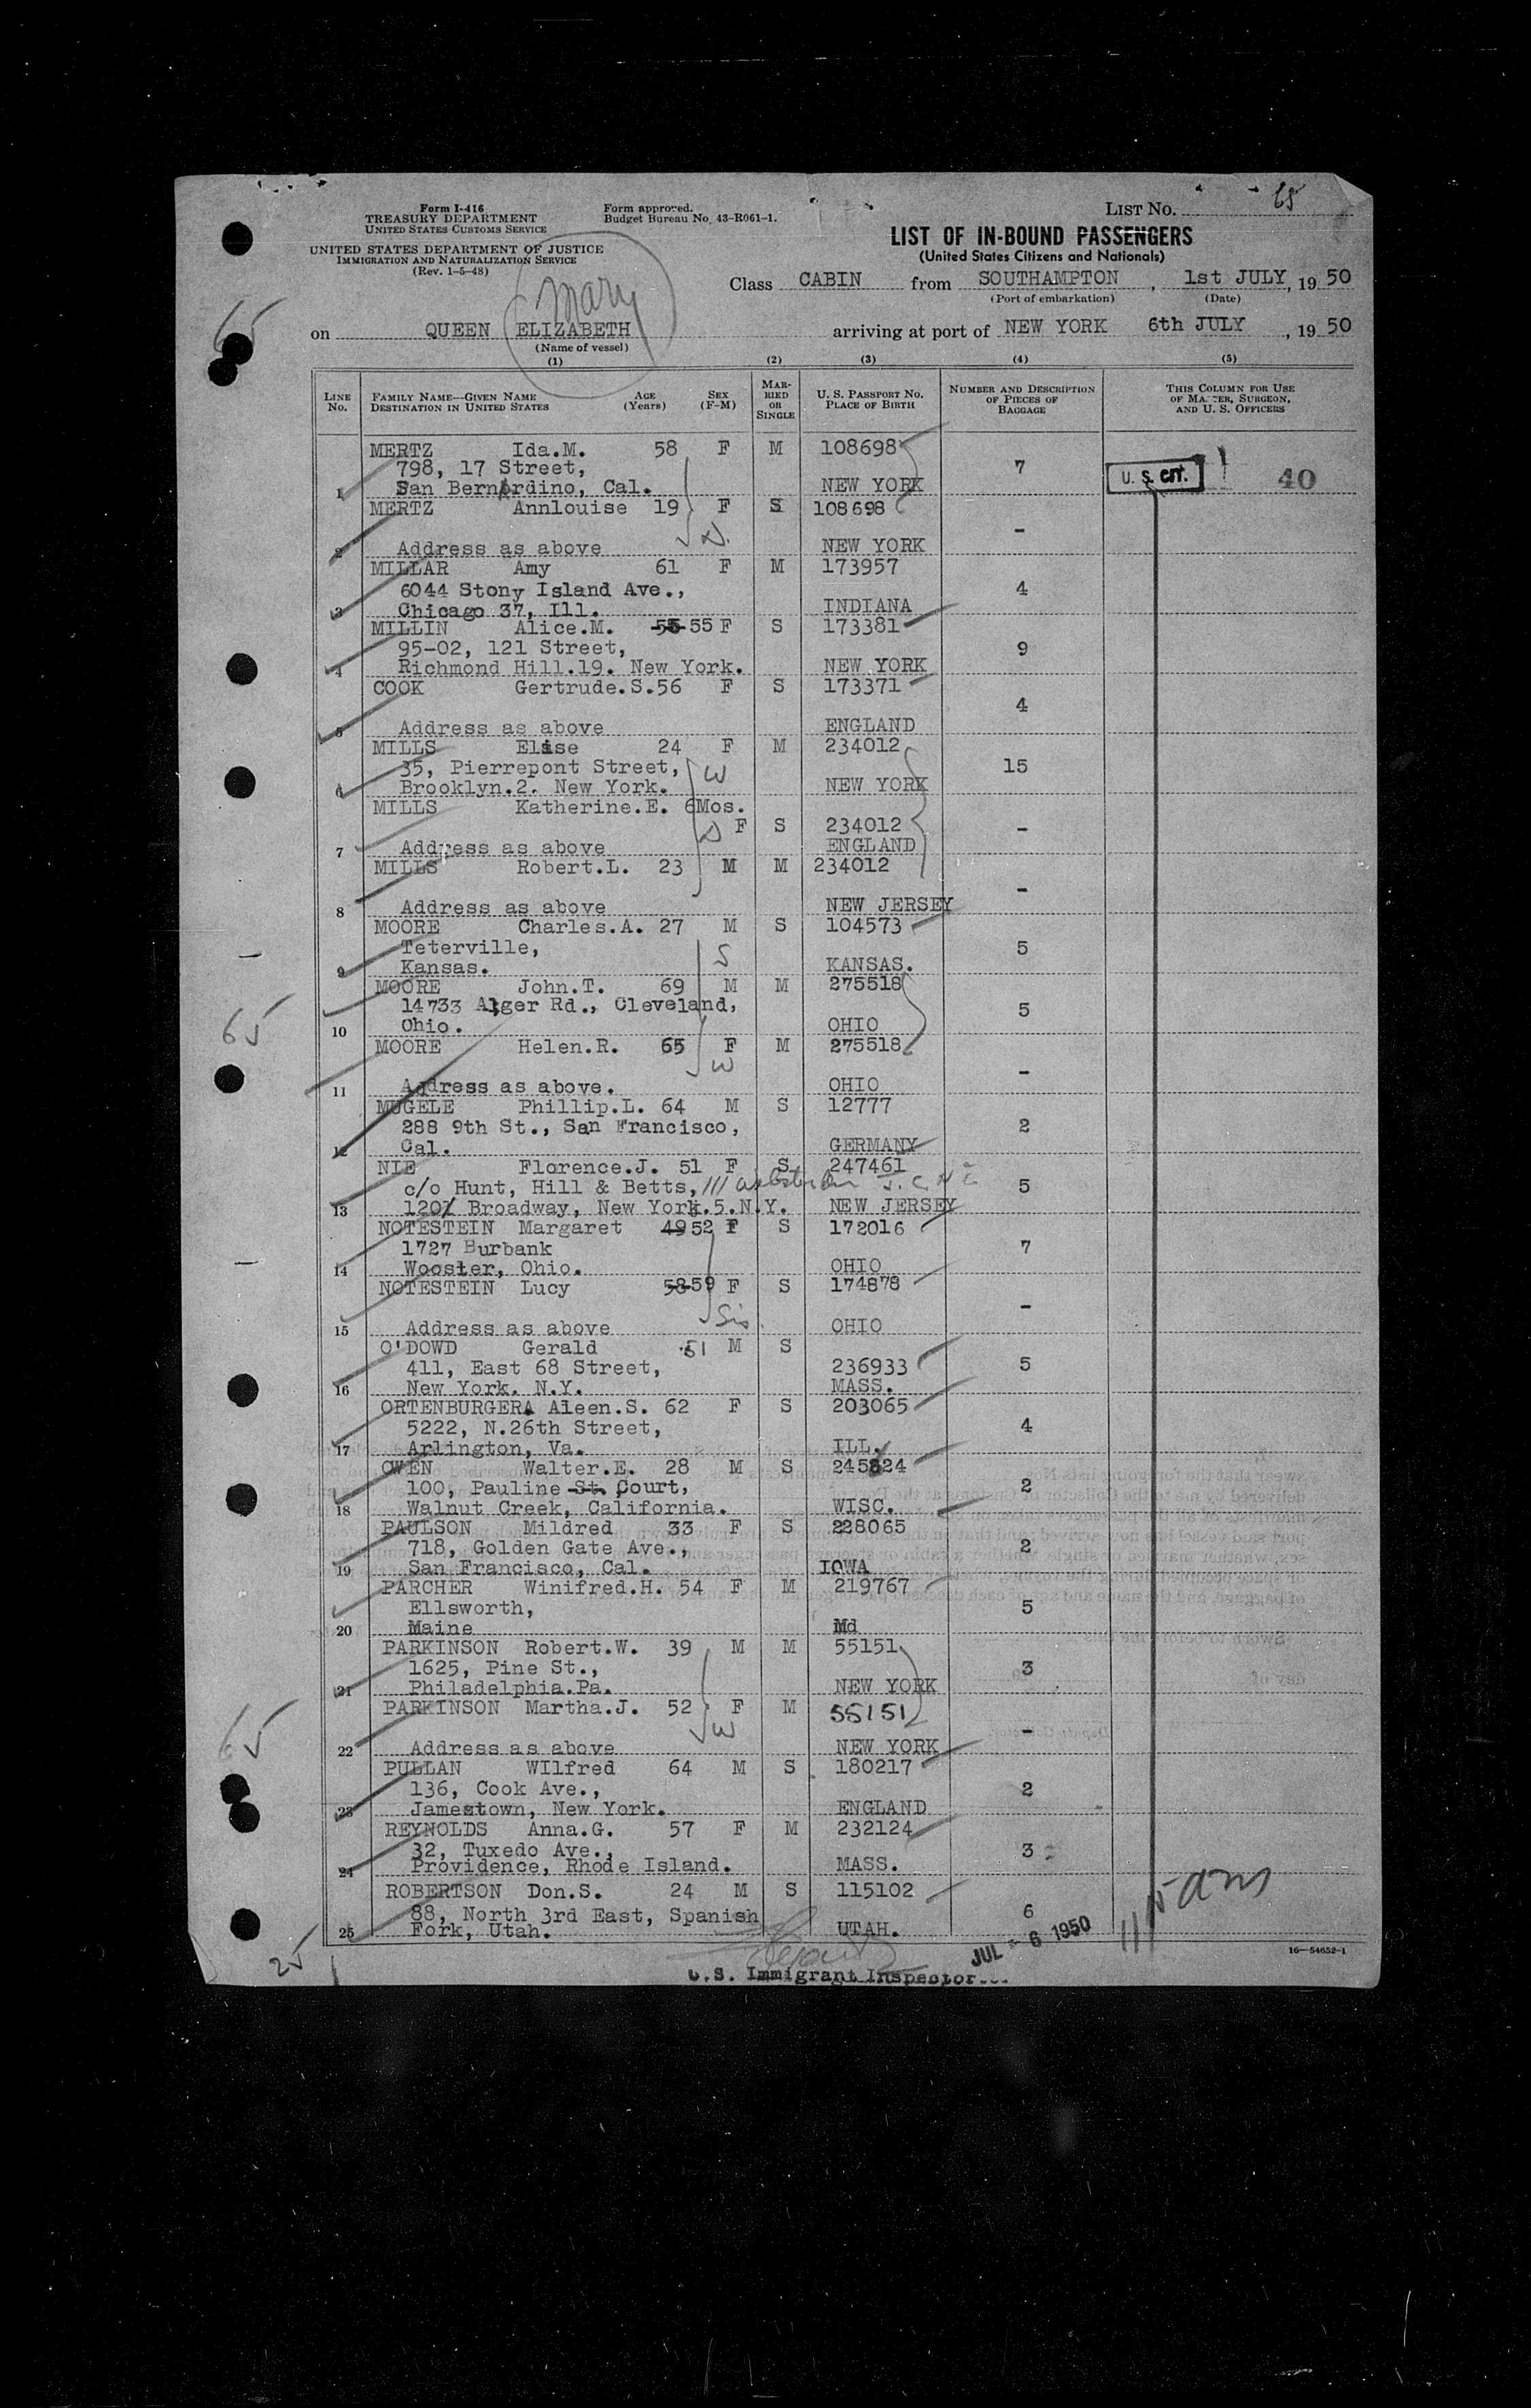 65
Form I-416
TREASURY DEPARTMENT
UNITED STATES CUSTOMS SERVICE
Form approved.
Budget Bureau No. 43-R061-1.
LIST NO. 65
UNITED STATES DEPARTMENT OF JUSTICE
IMMIGRATION AND NATURALIZATION SERVICE
(Rev. 1-5-48)
LIST OF IN-BOUND PASSENGERS
(United States Citizens and Nationals)
Class CABIN from SOUTHAMPTON, 1st JULY, 1950
(Port of embarkation) (Date)
Mary
on QUEEN ELIZABETH arriving at port of NEW YORK 6th JULY, 1950
(Name of vessel)
(1) (2) (3) (4) (5)
LINE No. FAMILY NAME—GIVEN NAME DESTINATION IN UNITED STATES AGE (Years) SEX (F-M) MARRIED OR SINGLE U. S. PASSPORT NO. PLACE OF BIRTH NUMBER AND DESCRIPTION OF PIECES OF BAGGAGE THIS COLUMN FOR USE OF MASTER, SURGEON, AND U. S. OFFICERS
MERTZ Ida.M. 58 F M 108698
798, 17 Street, 7 U. S. CIT. 40
1 San Bernardino, Cal. NEW YORK
MERTZ Annlouise 19 F S 108698
D. -
2 Address as above NEW YORK
MILLAR Amy 61 F M 173957
6044 Stony Island Ave., 4
3 Chicago 37, Ill. INDIANA
MILLIN Alice.M. 55 55 F S 173381
95-02, 121 Street, 9
4 Richmond Hill.19. New York. NEW YORK
COOK Gertrude.S. 56 F S 173371
4
5 Address as above ENGLAND
MILLS Elise 24 F M 234012
35, Pierrepont Street, W 15
6 Brooklyn.2. New York. NEW YORK
MILLS Katherine.E. 6Mos.
D F S 234012 -
7 Address as above ENGLAND
MILLS Robert.L. 23 M M 234012
-
8 Address as above NEW JERSEY
MOORE Charles.A. 27 M S 104573
Teterville, S 5
9 Kansas. KANSAS.
MOORE John.T. 69 M M 275518
14733 Alger Rd., Cleveland, 5
10 Ohio. OHIO
MOORE Helen.R. 65 F M 275518
W -
11 Address as above. OHIO
MUGELE Phillip.L. 64 M S 12777
288 9th St., San Francisco, 2
12 Cal. GERMANY
NIE Florence.J. 51 F S 247461
c/o Hunt, Hill & Betts, 111 5
13 120 Broadway, New York.5.N.Y. NEW JERSEY
NOTESTEIN Margaret 49 52 F S 172016
1727 Burbank 7
14 Wooster, Ohio. OHIO
NOTESTEIN Lucy 58 59 F S 174878
Sis. -
15 Address as above OHIO
O'DOWD Gerald 51 M S
411, East 68 Street, 236933 5
16 New York. N.Y. MASS.
ORTENBURGER Aleen.S. 62 F S 203065
5222, N.26th Street, 4
17 Arlington, Va. ILL.
OWEN Walter.E. 28 M S 245824
100, Pauline St. Court, 2
18 Walnut Creek, California. WISC.
PAULSON Mildred 33 F S 228065
718, Golden Gate Ave., 2
19 San Francisco, Cal. IOWA
PARCHER Winifred.H. 54 F M 219767
Ellsworth, 5
20 Maine Md
PARKINSON Robert.W. 39 M M 55151
1625, Pine St., 3
21 Philadelphia.Pa. NEW YORK
PARKINSON Martha.J. 52 F M 55151
W -
22 Address as above NEW YORK
PULLAN WIlfred 64 M S 180217
136, Cook Ave., 2
23 Jamestown, New York. ENGLAND
REYNOLDS Anna.G. 57 F M 232124
32, Tuxedo Ave., 3
24 Providence, Rhode Island. MASS.
ROBERTSON Don.S. 24 M S 115102
88, North 3rd East, Spanish 6
25 Fork, Utah. UTAH.
JUL - 6 1950
16—54652-1
25
U.S. Immigrant Inspector
65
65
65